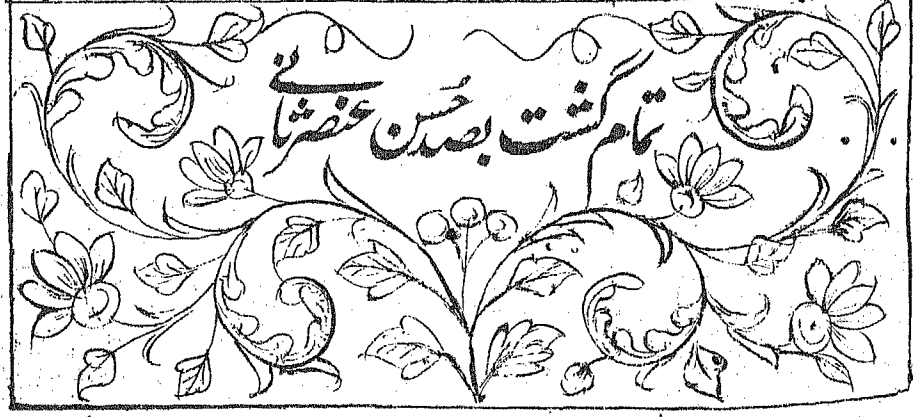 تمام گشت بصد حُسن عنصر ثانی